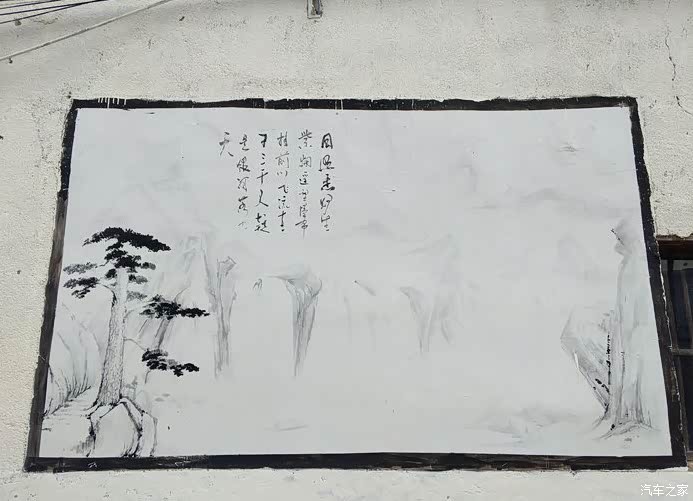 日照香炉生
紫烟遥瀑布
挂前川飞流直
下三千尺疑
是银河落九
天
汽车之家